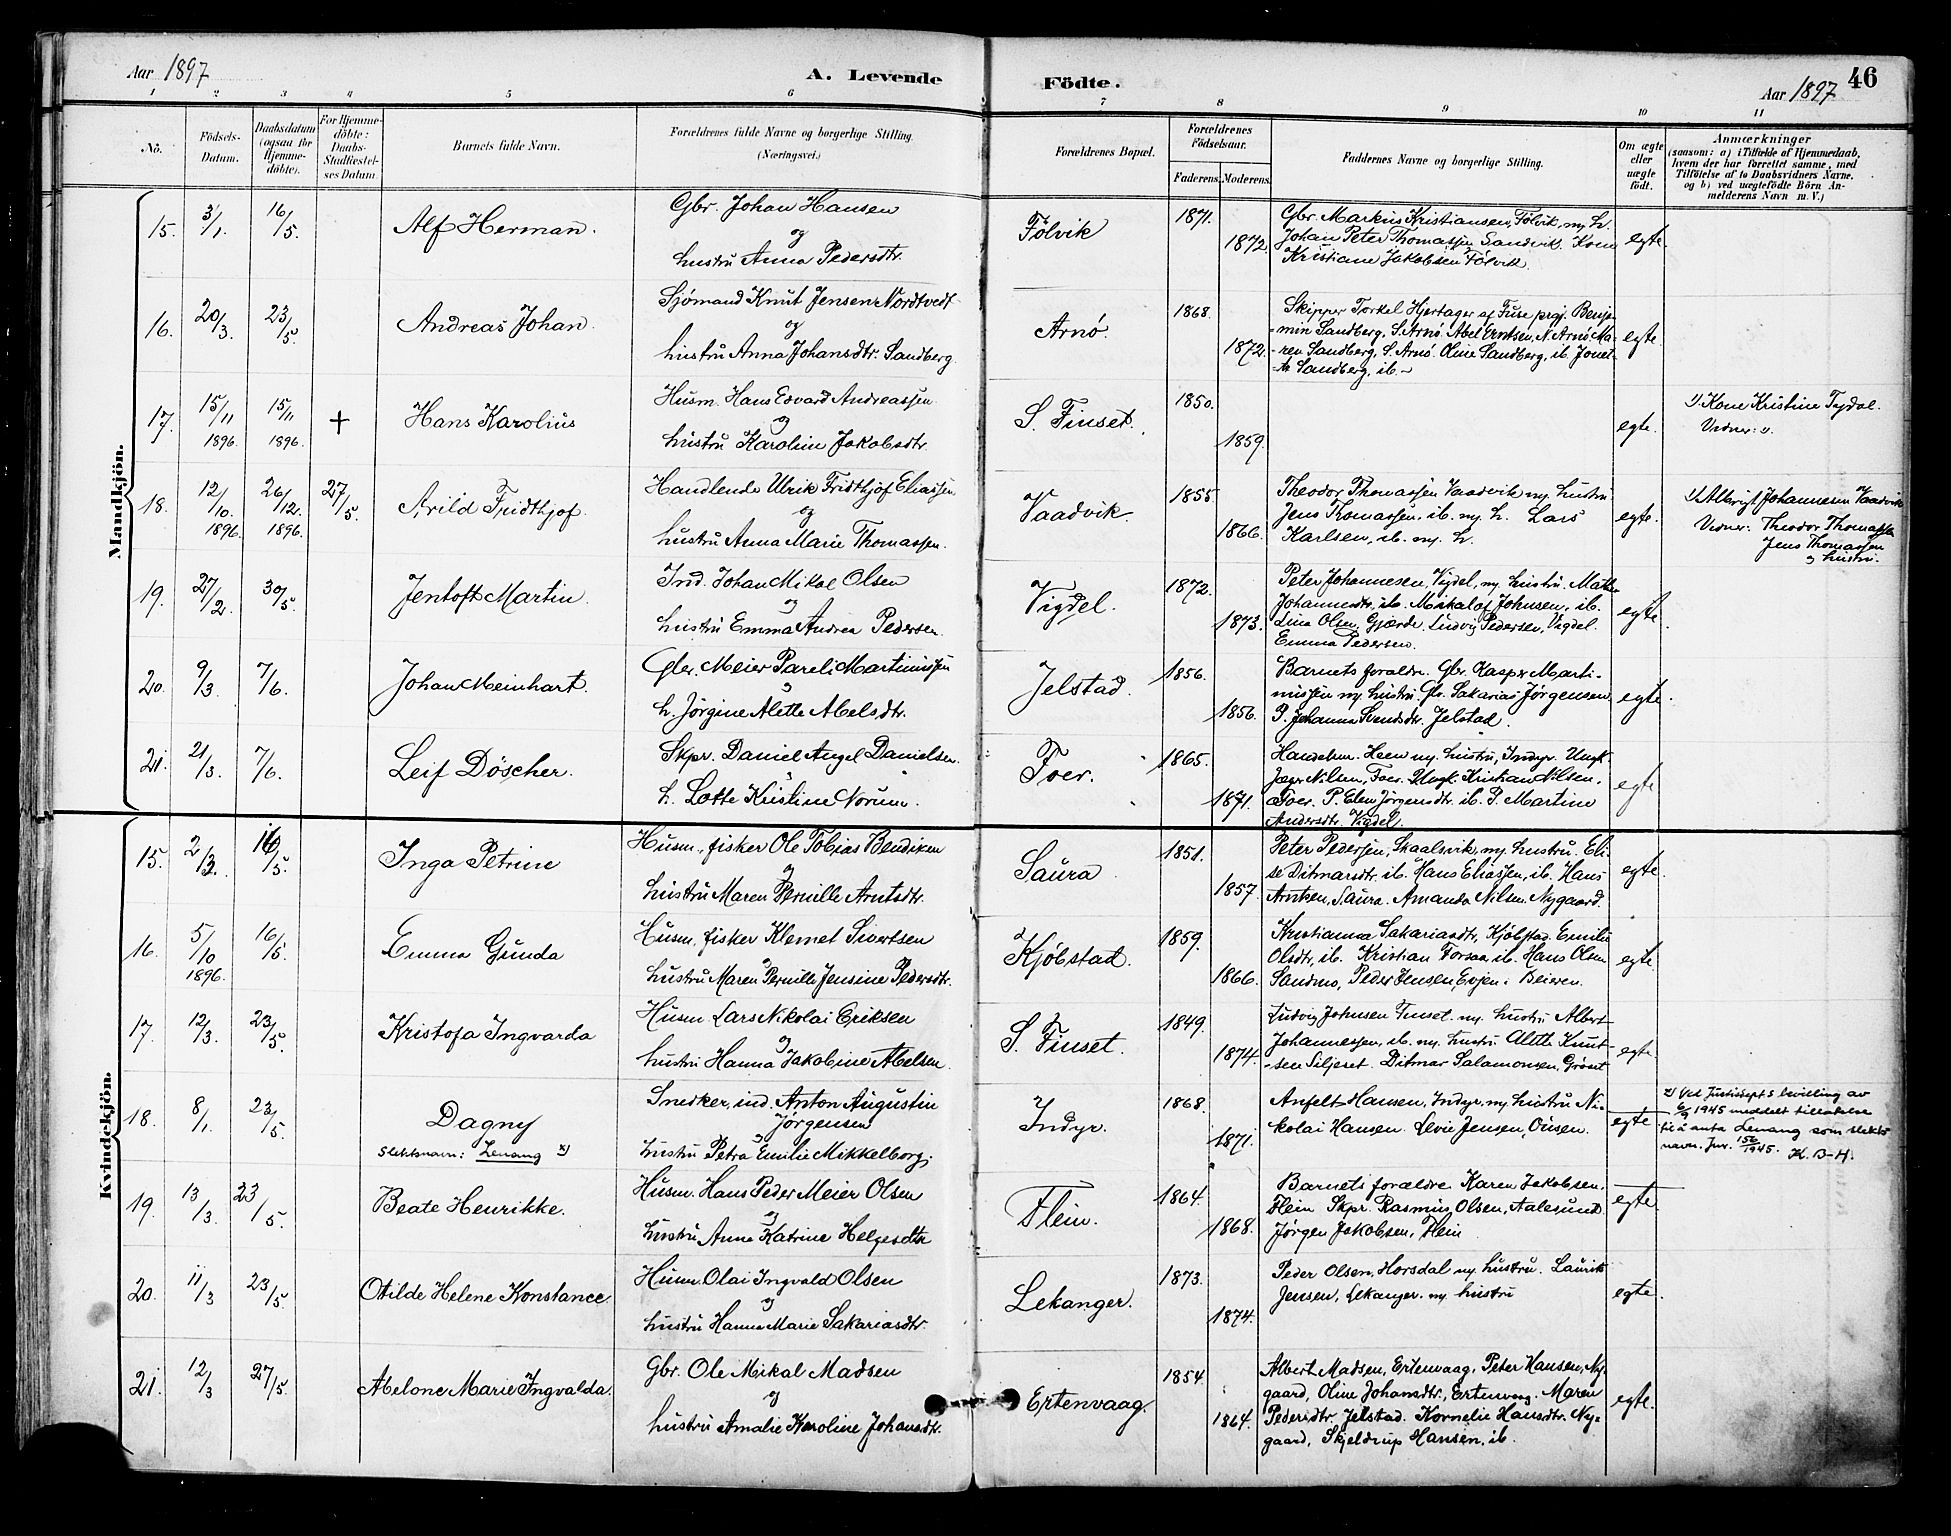 Aar 1897
A. Levende
Födte.
Aar 1897
46
1 2 3 4 5 6 7 8 9 10 11
No.
Födsels-
Datum.
Daabsdatum
(ogsaa for
Hjemme-
döbte).
For Hjemme-
döbte:
Daabs-
Stadfæstel-
ses Datum.
Barnets fulde Navn.
Forældrenes fulde Navne og borgerlige Stilling.
(Næringsvei.)
Forældrenes Bopæl.
Forældrenes
Födselsaar.
Faderens.
Moderens.
Faddernes Navne og borgerlige Stilling.
Om ægte
eller
uægte
födt.
Anmærkninger
(saasom: a) i Tilfælde af Hjemmedaab,
hvem der har forrettet samme, med
Tilföielse af to Daabsvidners Navne,
og b) ved uægtefödte Börn An-
melderens Navn m. V.)
Mandkjön.
15. 3/1. 16/5. Alf Herman.
Gbr. Johan Hansen
og
hustru Anna Pedersdtr.
Følvik
1871.
1872.
Gbr. Markus Kristiansen, Følvik, m. h.
Johan Peter Thomassen Sandvik. Kone
Kristiane Jakobsen Følvik.
egte.
16. 20/3. 23/5. Andreas Johan.
Sjømand Knut Jensen Nordtvedt
og
hustru Anna Johansdtr. Sandberg.
Arnø.
1868.
1872.
Skipper Torkel Hjertager af Fuse prgj. Benja-
-min Sandberg, S. Arnø. Abel Erntsen, N. Arnø, Ma-
-ren Sandberg, S. Arnø. Oline Sandberg, ib. Jonet-
-te Sandberg, ib.
egte.
17. 15/11 1896. 15/11 1896. + Hans Karolius
Husm. Hans Edvard Andreassen
og
hustru Karoline Jakobsdtr.
S. Finset.
1850.
1859.
egte.
1/. Kone Kristine Tydal.
Vidner: 0.
18. 12/10. 1896. 26/12. 1896. 27/5. Arild Fridthjof.
Handlende Ulrik Fridthjof Eliassen
og
hustru Anna Marie Thomassen.
Vaadvik.
1855.
1866.
Theodor Thomassen Vaadvik m. hustru
Jens Thomassen, ib. m. h. Lars
Karlsen, ib. m. h.
egte.
1/. Albrigt Johannesen Vaadvik
Vidner: Theodor Thomassen
Jens Thomassen
og hustru.
19. 27/2. 30/5. Jentoft Martin.
Ind. Johan Mikal Olsen
og
hustru Emma Andrea Pedersen.
Vigdel.
1872.
1873.
Peter Johannesen, Vigdel, m. hustru. Mathea
Johannesdtr. ib. Mikal Johnsen, ib.
Lina Olsen, Gjærde. Ludvig Pedersen, Vigdel.
Emma Pedersen.
egte.
20. 9/3. 7/6. Johan Meinhart.
Gbr. Meier Pareli Martinussen
og
h. Jörgine Alette Abelsdtr.
Jelstad.
1856.
1856.
Barnets foraldre. Gbr. Kaspr Marti-
nussen m. hustru, Gbr. Sakarias Jørgensen,
P. Johanna Svendsdtr. Jelstad.
egte.
21. 21/3. 7/6. Leif Döscher.
Skpr. Daniel Angel Danielsen.
og
h. Lotte Kristine Norum.
Foer.
1865.
1871.
Handelsm. Heen m. hustru, Indyr. Ungk.
Jæger Nilsen, Foer. Ungk. Kristian Nilsen,
Foer. P. Elen Jörgensdtr. ib. P. Martine
Andersdtr. Vigdel.
egte
Kvindekjön.
15. 2/3. 16/5. Inga Petrine
Husm., fisker Ole Tobias Bendiksen
og
hustru Maren Pernille Arntsdtr.
Saura
1851.
1857.
Peter Pedersen, Skaalsvik, m. hustru. Eli-
se Ditmarsdtr. ib. Hans Eliassen, ib. Hans
Arntsen, Saura. Amanda Nilsen Nygaard.
egte.
16. 5/10 1896. 16/5. Emma Gunda
Husm. fisker Klemet Sivertsen
og
hustru Maren Pernille Jensine Pedersdtr.
Kjöbstad.
1859.
1866.
Kristianna Sakariasdtr., Kjöbstad. Emilie
Olsdtr, ib. Kristian Forsaa, ib. Hans Olsen
Sandmo, Peder Jensen, Evjen i Beieren.
egte.
17. 12/3. 23/5. Kristofa Ingvarda
Husm. Lars Nikolai Eriksen
og
hustru Hanna Jakobine Abelsen.
S. Finset.
1849.
1874.
Ludvig Johnsen Finset. m. hustru Albert
Johannessen, ib. m. hustru Alette Knut-
-sen Siljeset. Ditmar Salamonsen, Grønt
egte.
18. 8/1. 23/5. Dagny
Slektsnavn: Lenang x)
Snedker, ind. Anton Augustin
Jörgensen
og
hustru Petra Emilie Mikkelborg.
Indyr.
1868.
1871.
Anfelt Hansen, Indyr, m. hustru Ni-
kolai Hansen. Levie Jensen, Ousen.
egte
x) Ved Justisdept.s bevilling av
6/9 1945 meddelt tillatelse
til å anta Lenang som slekts
navn. Jnr. 156/1945. K. B-H.
19. 13/3. 23/5. Beate Henrikke.
Husm. Hans Peder Meier Olsen
og
hustru Anna Katrine Helgesdtr
Flein.
1864.
1868.
Barnets forældre. Karen Jakobsen,
Flein Skpr. Rasmus Olsen, Aalesund
Jørgen Jakobsen, Flein
egte.
20. 11/3 23/5. Otilde Helene Konstance.
Husm. Olai Ingvald Olsen
og
hustru Hanna Marie Sakariasdtr.
Lekanger.
1873.
1874.
Peder Olsen, Horsdal m. hustru. Laurits
Jensen, Lekanger. m. hustru
egte.
21. 12/3 27/5. Abelone Marie Ingvalda.
Gbr. Ole Mikal Madsen
og
hustru Amalie Karoline Johansdtr.
Ertenvaag.
1854.
1864.
Albert Madsen, Ertenvaag, Peter Hansen, Ny-
gaard, Oline Johansdtr., Ertenvaag. Maren
Pedersdtr. Jelstad. Kornelie Hansdtr. Ny-
gaard, Skjeldrup Hansen, ib.
egte.